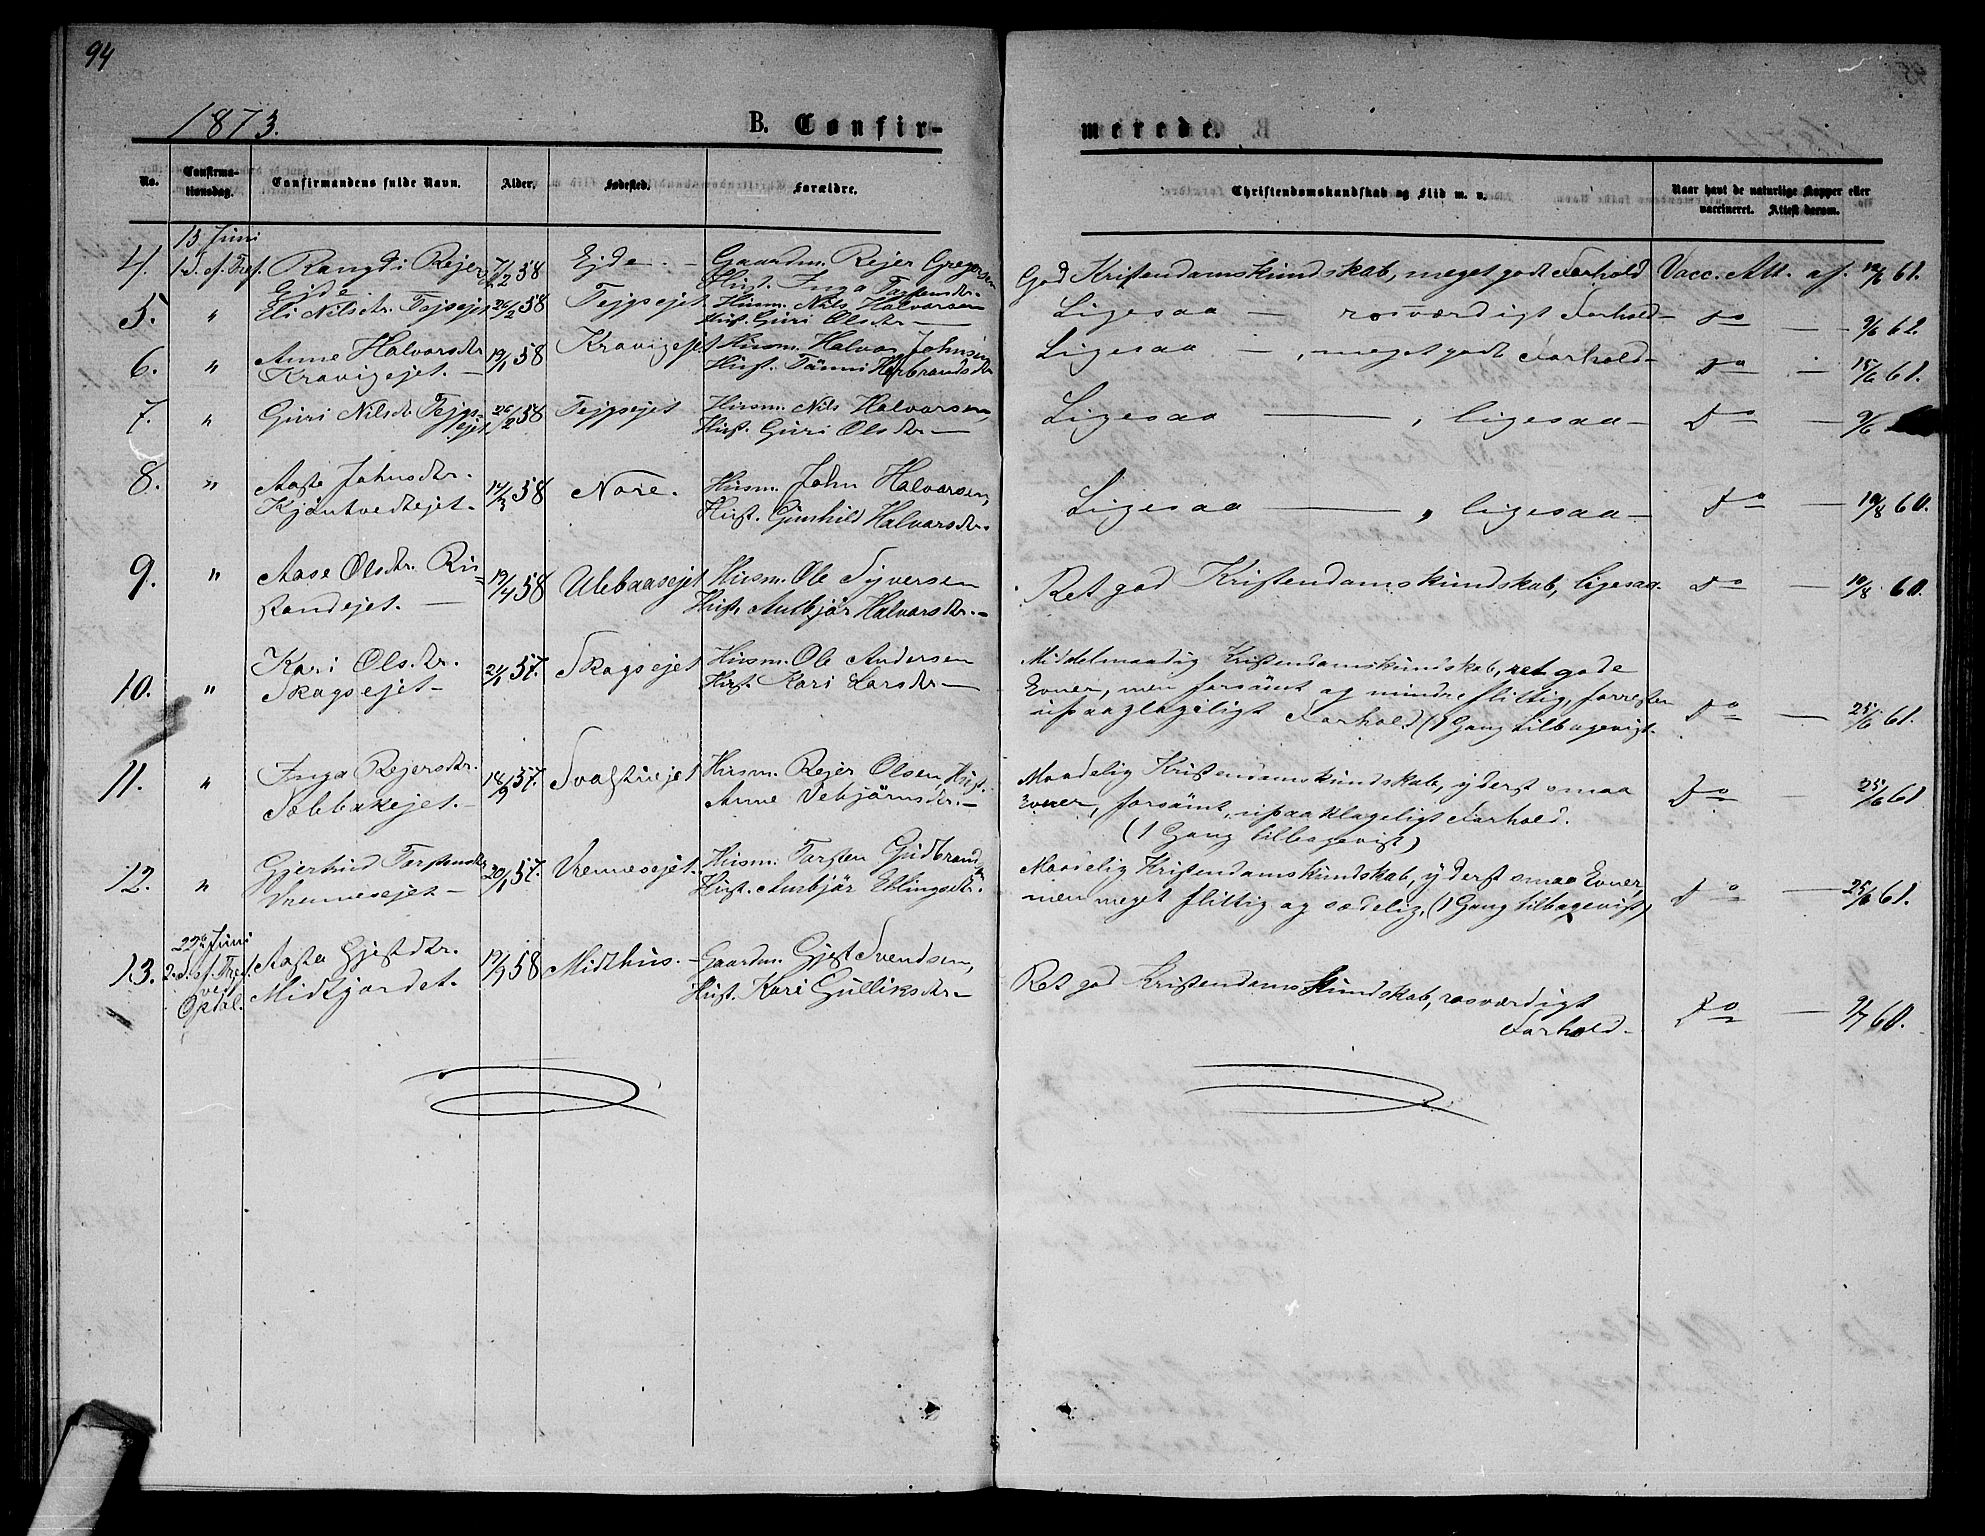 94
1873.
B. Confir-
merede.
No.
Confirma-
tionsdag.
Confirmandens fulde Navn.
Alder.
Fødested.
Forældre.
Christendomskundskab og Flid m. v.
Naar havt de naturlige Kopper eller
vaccineret. Attest derom.
15 Juni
4. 1. S. e. Tref. Rangdi Rejersdr. 7/2 58 Ejde. — Gaardm. Rejer Gregersen
Ejde Hust. Inga Torstensdr. —
God Kristendomskundskab, meget godt Forhold Vacc. Att. af 12/6 61.
5. " Eli Nilsdr. Tejpsejet 26/2 58 Tejpsejet Husm. Nils Halvorsen
Hust. Guri Olsdr. —
Ligesaa — rosværdigt Forhold — Do — 9/6 62.
6. " Anne Halvorsdr. 19/1 58 Kravigejet Husm. Halvor Johnsen
Kravigejet. — Hust. Tänni Herbrandsdr.
Ligesaa —, meget godt Forhold — Do — 15/6 61.
7. " Guri Nilsdr. Tejps- 26/2 58 Tejpsejet Husm. Nils Halvorsen,
ejet. Hust. Guri Olsdr. —
Ligesaa —, ligesaa — Do — 9/6
8. " Aaste Johnsdr. 14/3 58 Nore. Husm. John Halvorsen,
Kjöntvedtejet. Hust. Gunhild Halvorsdr.
Ligesaa —, ligesaa — Do — 19/8 60.
9. " Aase Olsdr. Ru- 19/4 58 Ulebaasejet Husm. Ole Syversen
Hust. Anbjör Halvorsdr. —
Ret god Kristendomskundskab, ligesaa. Do — 10/8 60.
10. " Kari Olsdr. 24/1 57. Skagsejet Husm. Ole Andersen
Skagsejet — Hust. Kari Larsdr —
Middelmaadig Kristendomskundskab, ret gode
Evner, men forsömt og mindre flittig, forresten
upaaklageligt Forhold (1 Gang tilbagevist. Do — 25/6 61.
11. " Inga Rejersdr. 18/9 57. Husm. Rejer Olsen, Hust.
Anne Vebjörnsdr. —
Maadelig Kristendomskundskab, yderst smaa
Evner, forsömt, upaaklageligt Forhold.
(1 Gang tilbagevist) Do — 25/6 61
12. " Gjertrud Torstensdr. 20/1 57. Vrennesejet. Husm. Torsten Gudbrands
Vrennesejet — Hust. Anbjör Ellingsdr.
Maadelig Kristendomskundskab, yderst smaa Evner,
men meget flittig og sædelig. (1 Gang tilbagevist) Do — 25/6 61.
22de Juni
13. 2. S. ef. Tref. Aasta Gjestdr. 19/1 58 Midthus. — Gaardm. Gjest Svendsen,
ved Midtjordet. Hust. Kari Gulliksdr —
Opdal.
Ret god Kristendomskundskab, rosværdigt
Forhold — Do — 9/7 60.